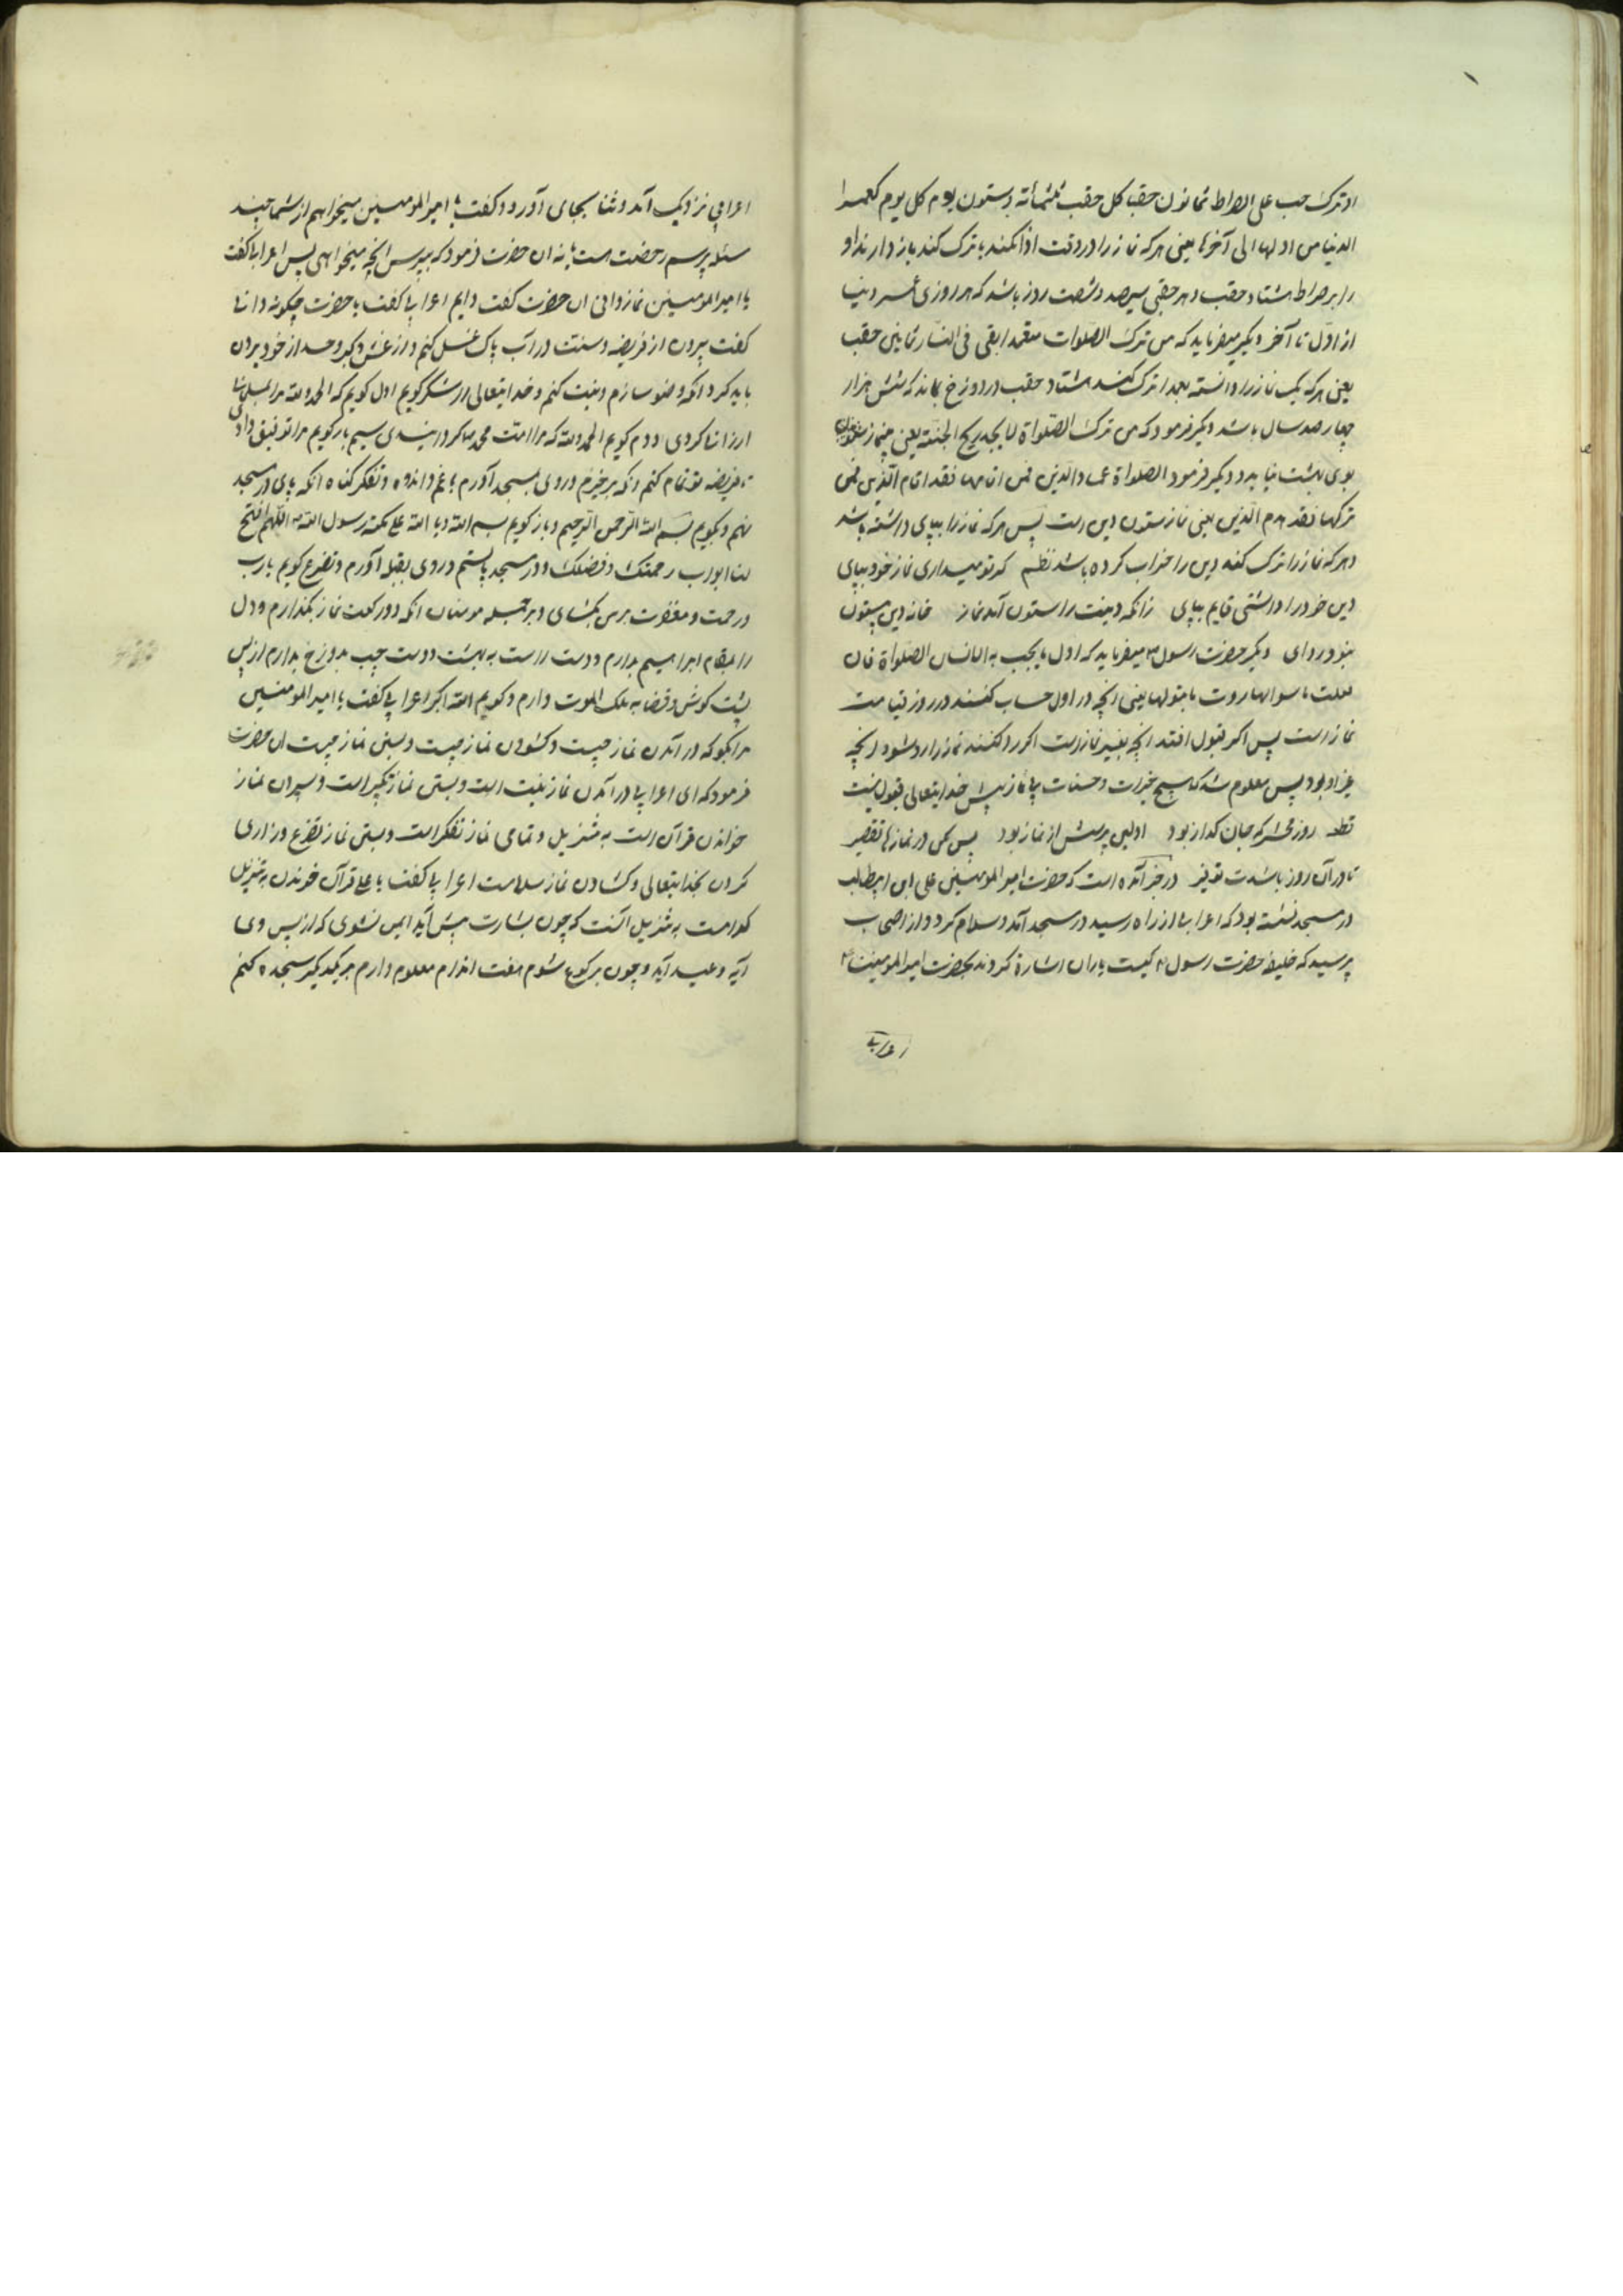 او ترک حب علی الصراط ثمانون حقبا کل حقب ثلثمائة وستون یوم کل یوم کعمر
الدنیا من اولها الی آخرها یعنی هرکه نماز را در وقت ادا نکند یا ترک کند باز دارند او
را بر صراط هشتاد حقب و هر حقبی سیصد و شصت روز باشد که هر روزی عمر دنیا
از اول تا آخر دیکر میفرماید که من ترک الصلوات متعمدا بقی فی النار ثمانین حقب
یعنی هرکه یک نماز را دانسته بعمدا ترک کند هشتاد حقب در دوزخ بماند که شش هزار
چهار صد سال باشد دیکر فرمود که من ترک الصلواة لا یجد ریح الجنة یعنی بی نماز
بوی بهشت نیابد و دیکر فرمود الصلواة عماد الدین فمن اقامها فقد اقام الدین فمن
ترکها فقد هدم الدین یعنی نماز ستون دین است پس هرکه نماز را بپای داشته باشد
و هرکه نماز را ترک کند دین را خراب کرده باشد نظم کر تو میداری نماز خود بپای
دین خود را داشتی قایم بپای زانکه دینت را ستون آمد نماز خانه دین بیستون
نبود روای دیکر حضرت رسول میفرماید که اول ما یجب به الانسان الصلواة فان
قبلت ما سواها روت ما قبولها یعنی آنچه در اول حساب کنند در روز قیامت
نماز است پس اکر قبول افتد آنچه بغیر نماز است اکر رد کنند نماز را رد شود آنچه
غیر او بود پس معلوم شد که هیچ خیرات و حسنات بی نماز پیش خدایتعالی قبول نیست
قطعه روز محشر که جان کداز بود اولین پرسش از نماز بود پس مکن در نمازها تقصیر
تا در آن روز باشدت توقیر در خبر آمده است که حضرت امیر المؤمنین علی ابن ابیطالب
در مسجد نشسته بود که اعرابی از راه رسید در مسجد آمد و سلام کرد و از اصحاب
پرسید که خلیفه حضرت رسول کیست یاران اشارة کردند بحضرت امیر المؤمنین
اعرابی
اعرابی نزدیک آمد و ثنا بجای آورد و کفت یا امیر المؤمنین میخواهم از شما چند
مسئله پرسم رخصت هست یا نه ان حضرت فرمود که بپرس آنچه میخواهی پس اعرابی کفت
یا امیر المؤمنین نماز دانی ان حضرت کفت دانم اعرابی کفت یا حضرت چکونه دانی
کفت بیرون از فریضه و سنت در آب پاک غسل کنم و از غش و کبر و حسد از خود بیرون
باید کرد آنکه وضو سازم و نیت کنم و خدایتعالی را شکر کویم اول کویم که الحمد لله مرا مسلمانی
ارزانی کردی دوم کویم الحمد لله که مرا امت محمد کردانیدی سیم بار کویم مرا توفیق دادی
تا فریضه تو تمام کنم آنکه برخیزم و روی بمسجد آورم با غم و اندوه و تفکر کناه آنکه پای در مسجد
نهم و بکویم بسم الله الرحمن الرحیم و باز کویم بسم الله و بالله علی ملة رسول الله اللهم افتح
لنا ابواب رحمتک و فضلک و در مسجد بایستم و روی بقبله آورم و تضرع کویم یارب
در رحمت و مغفرت بر من بکشای و بر جمله مومنان آنکه دو رکعت نماز بکذارم و دل
را بمقام ابراهیم بدارم و دست راست به بهشت و دست چپ بدوزخ بدارم از پس
پشت کوش و قضا به ملک الموت دارم و کویم الله اکبر اعرابی کفت یا امیر المؤمنین
مرا بکو که در آمدن نماز چیست و کشودن نماز چیست و بستن نماز چیست ان حضرت
فرمود که ای اعرابی در آمدن نماز نیت است و بستن نماز تکبیر است و بیرون نماز
خواندن قرآن است به تنزیل و تمامی نماز تفکر است و بستن نماز تضرع و زاری
کردن بخدایتعالی و کشادن نماز سلامت اعرابی کفت یا علی قرآن خوندن به تنزیل
کدامست به تنزیل آنست که چون بشارت پیش آید ایمن نشوی که از پس وی
آیه وعید آید و چون برکوع شوم هفت اندام معلوم دارم بر یکدیکر سجده کنم